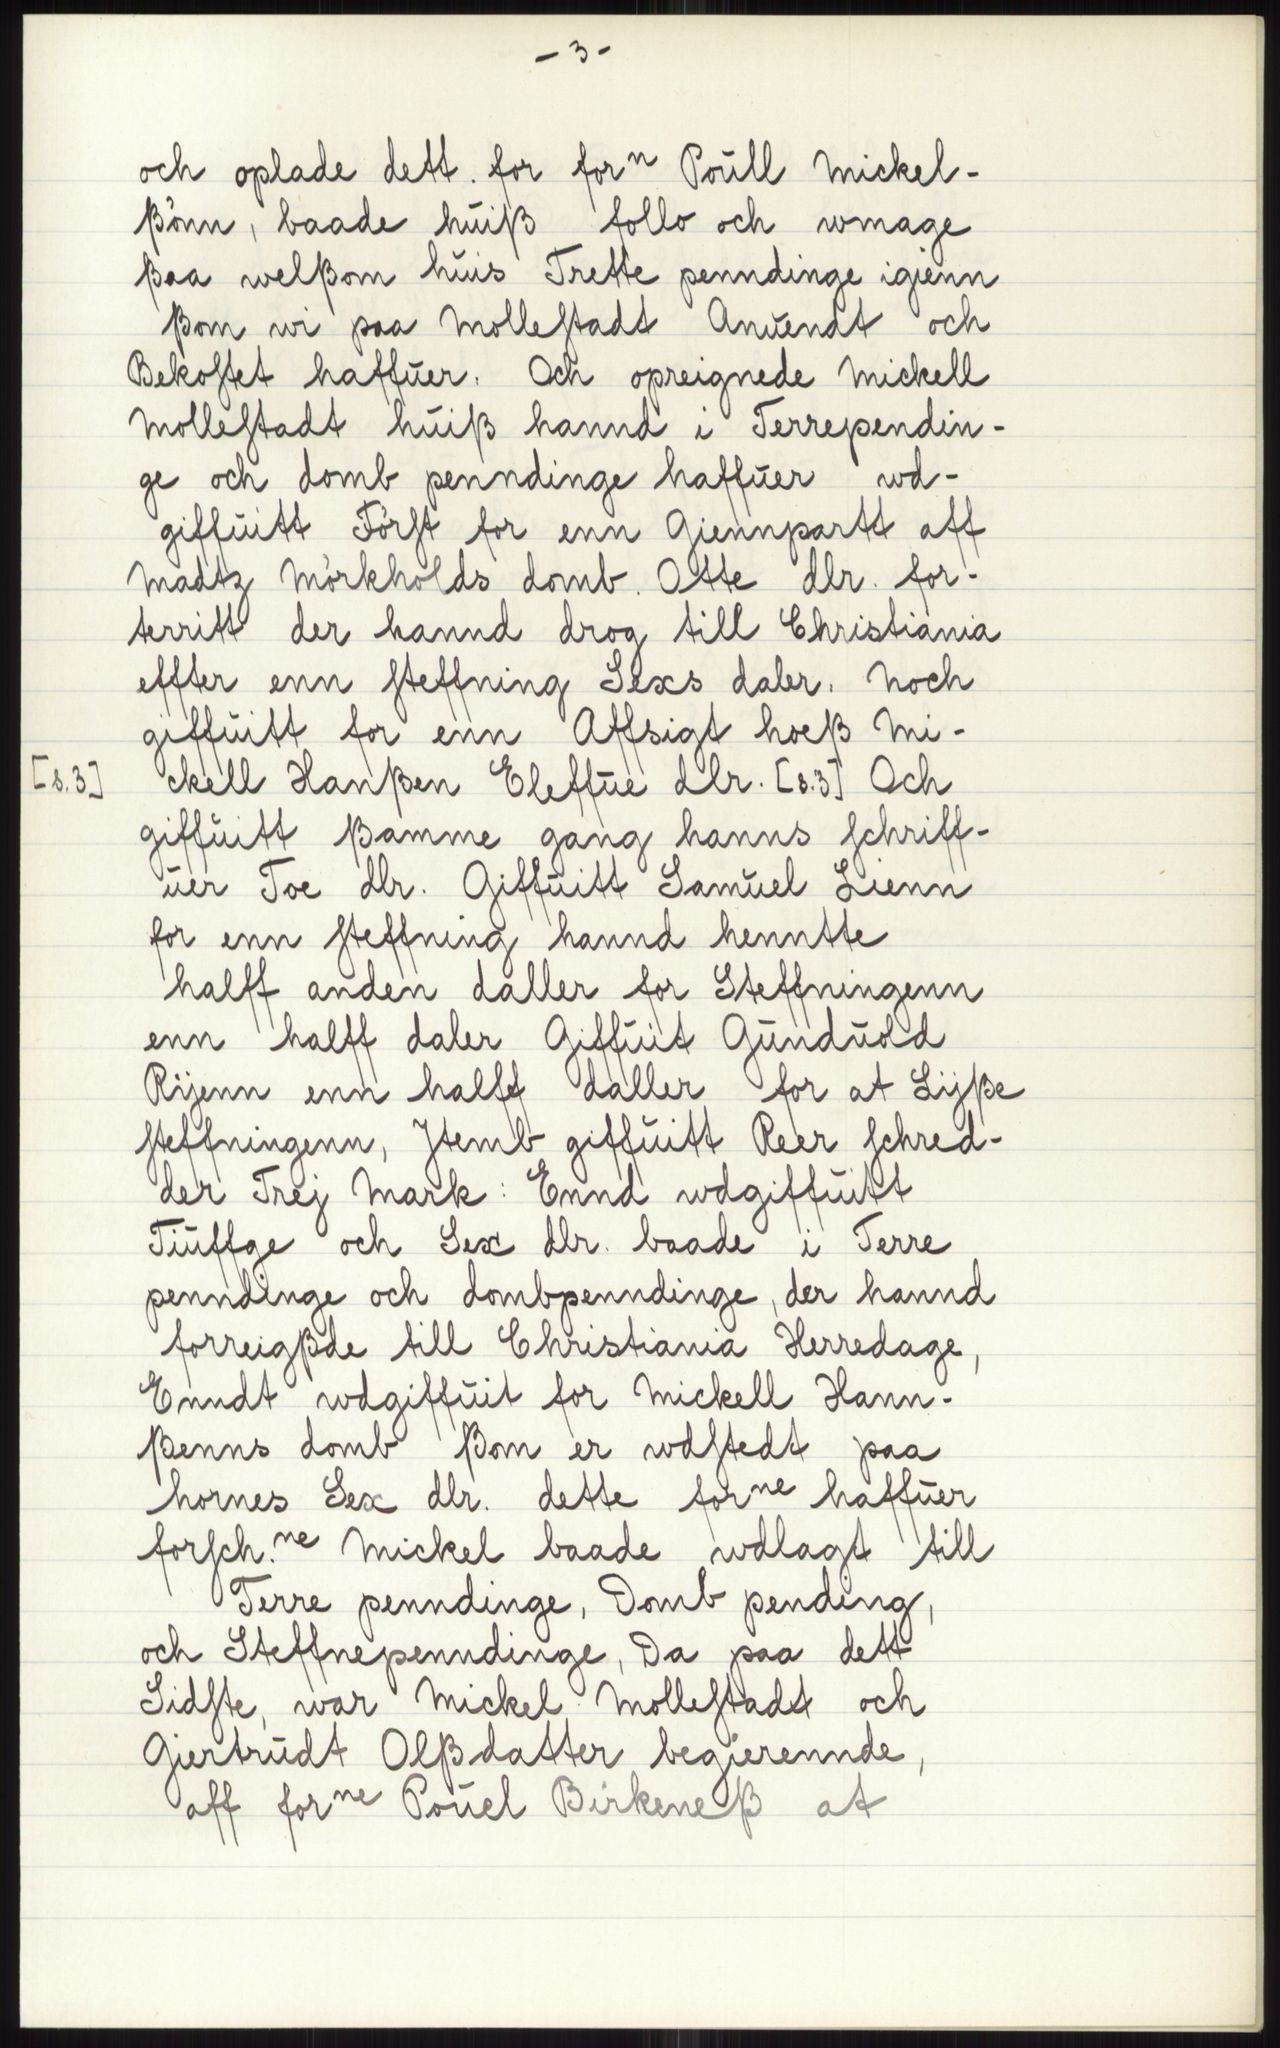 - 3 -
och oplade dett. for forn Poŭll Mickel-
ßönn, baade hŭiß follo och wmage
ßaa welßom hŭis Trette penndinge igienn
ßom wi paa Mollestadt Anŭendt och
Bekostet haffŭer. Och opreignede Mickell
Mollestadt hŭiß hannd i Terrependin-
ge och domb penndinge haffŭer wd-
giffŭitt Först for enn Giennpartt aff
Madtz Mörkholds domb. Otte dlr. for-
territt der hannd drog till Christiania
effter enn steffning Sexs daler. Noch
giffŭitt for enn Affsigt hoeß Mi-
[s.3] ckell Hanßen Eleffŭe dlr. [s.3] Och
giffŭitt ßamme gang hanns schriff-
ŭer Toe dlr. Giffŭitt Samŭel Lienn
for enn steffning hannd henntte
halff anden daller for Steffningenn
enn halff daler Giffŭit Gŭndŭold
Rijenn enn halff daller for at Lijße
steffningenn, Jtemb giffŭitt Reer schred-
der Trej Mark: Ennd wdgiffŭitt
Tiŭffge och Sex dlr. baade i Terre
penndinge och dombpenndinge, der hannd
forreigßde till Christiania Herredage,
Enndt wdgiffŭit for Mickell Hann-
ßenns domb ßom er wdstedt paa
hornes Sex dlr. dette forne haffŭer
forsch.ne Mickel baade wdlagt till
Terre penndinge, Domb pending,
och Steffnepenndinge, Da paa dett
Sidste, war Mickel Mollestadt och
Giertrŭdt Olßdatter begierennde,
aff forne Poŭel Birkeneß at